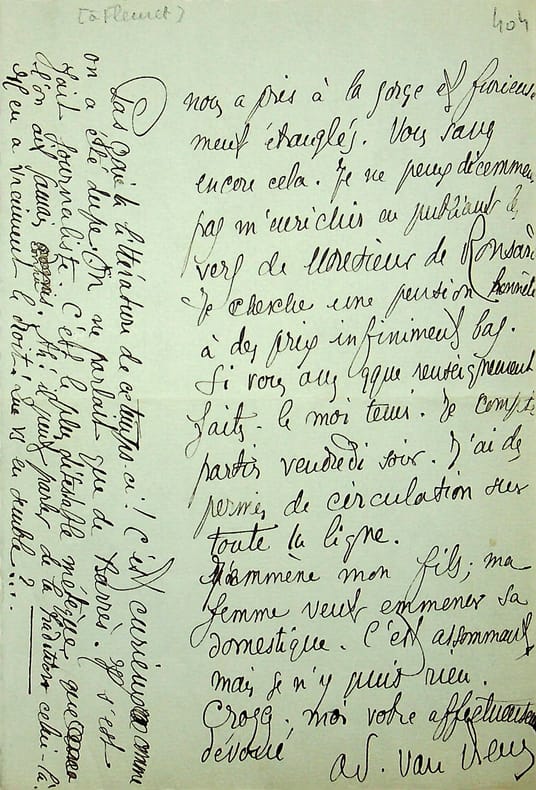 [à Fleuret]
404
nous a pris à la gorge et furieuse-
ment étranglés. Vous savez
encore cela. Je ne peux décemment
pas m'enrichir en publiant les
vers de Monsieur de Ronsard
Je cherche une pension honnête
à des prix infiniment bas.
Si vous avez qque renseignement
faites-le moi tenir. Je compte
partir vendredi soir. J'ai des
permis de circulation sur
toute la ligne.
J'emmène mon fils; ma
femme veut emmener sa
domestique. C'est assommant
mais je n'y puis rien.
Croyez-moi votre affectueusement
dévoué
ad. van Bever
Pas gaie la littérature de ce temps-ci! C'est curieux comme
on a été dupe. On ne parlait que de Barrès. Il s'est
fait journaliste. C'est le plus détestable métèque que
l'on ait jamais. Ah il peut parler de la tradition celui-là.
Il en a vraiment le droit. Que vs en semble?...